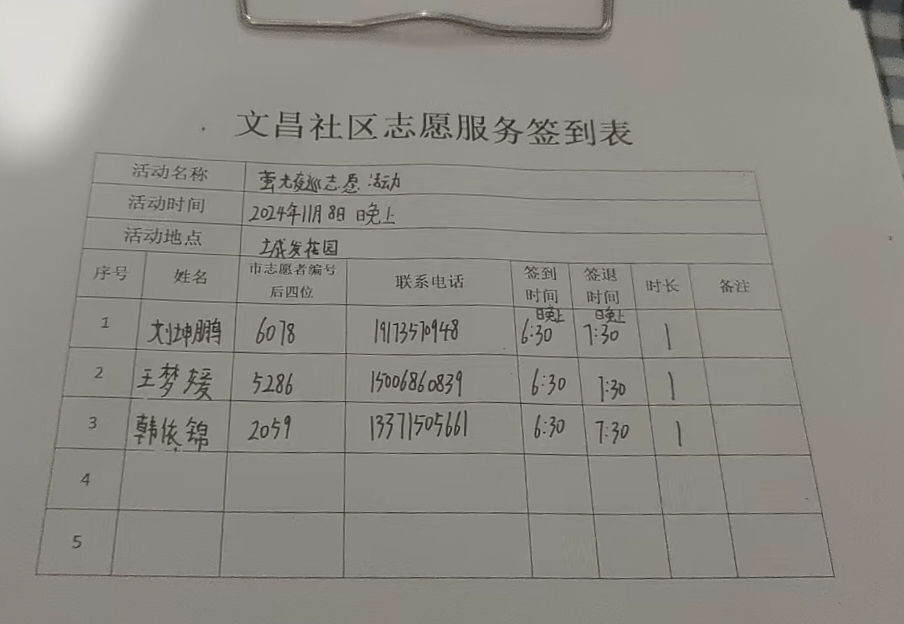 文昌社区志愿服务签到表
活动名称 萤光夜巡志愿活动
活动时间 2024年11月8日 晚上
活动地点 城发花园
序号 姓名 市志愿者编号后四位 联系电话 签到时间 签退时间 时长 备注
1 刘坤鹏 6078 19173570948 晚上6:30 晚上7:30 1
2 王梦媛 5286 15006860839 6:30 7:30 1
3 韩依锦 2059 13371505661 6:30 7:30 1
4
5